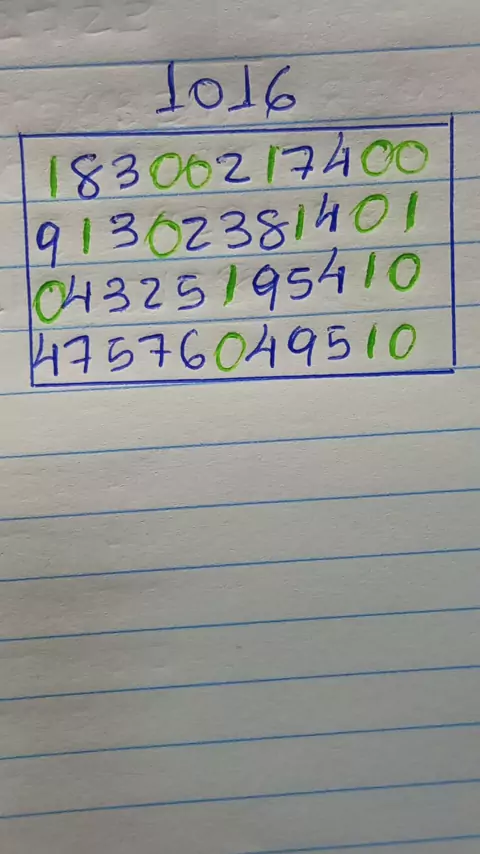 1016
18300217400
91302381401
04325195410
47576049510